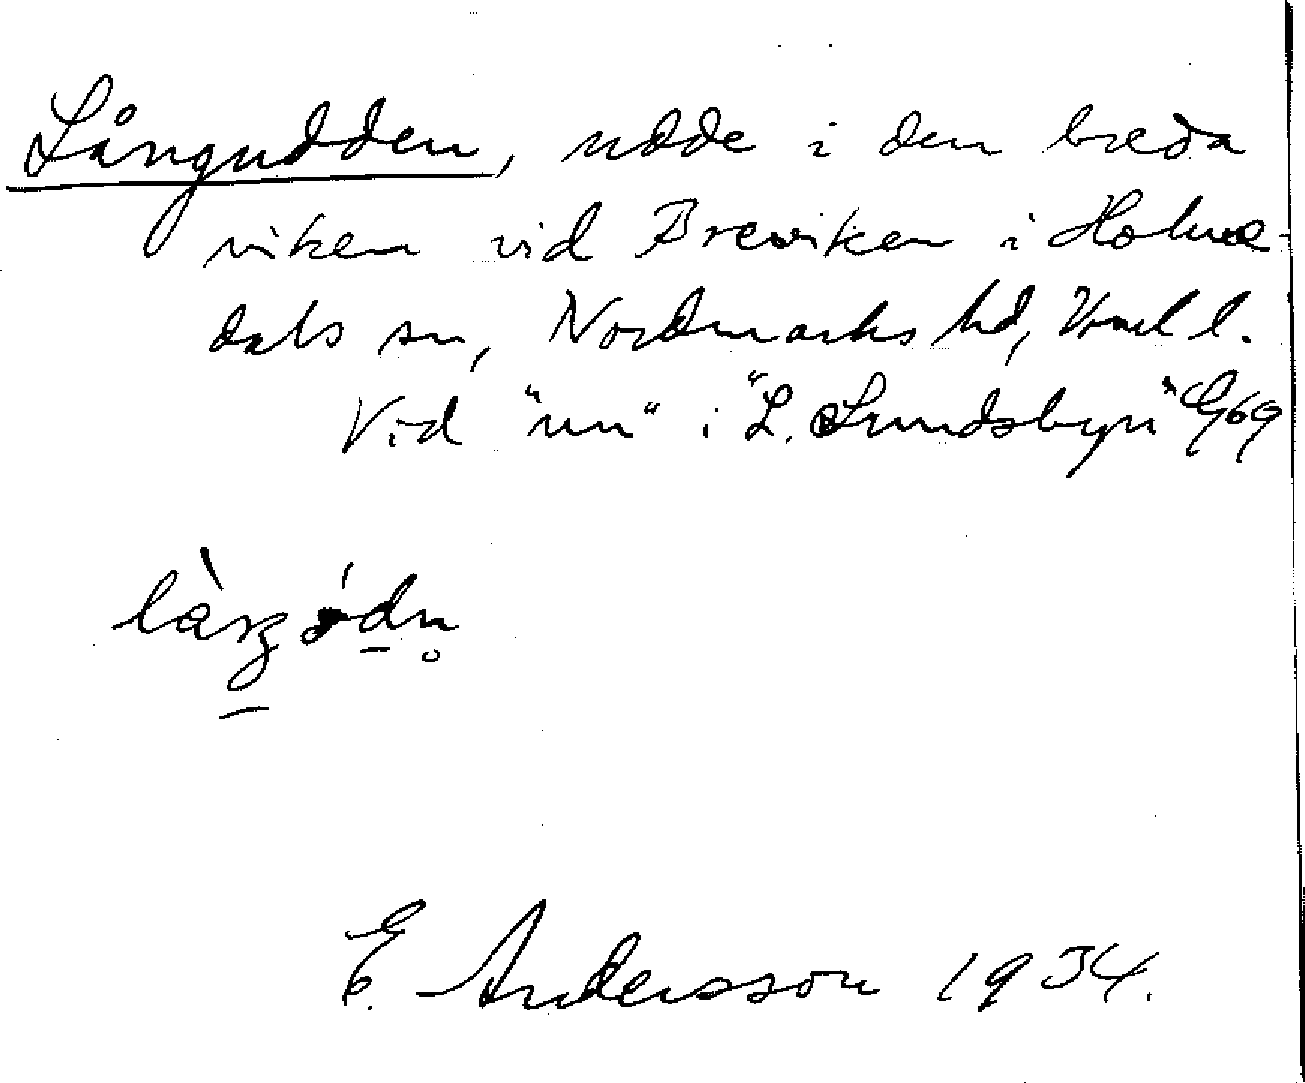 Långudden, udde i den breda
viken vid Breviken i Holme-
dals sn, Nordmarks hd, Vrml l.
Vid "nn" i "L. Sundsbyn" G69
E. Andersson 1934.